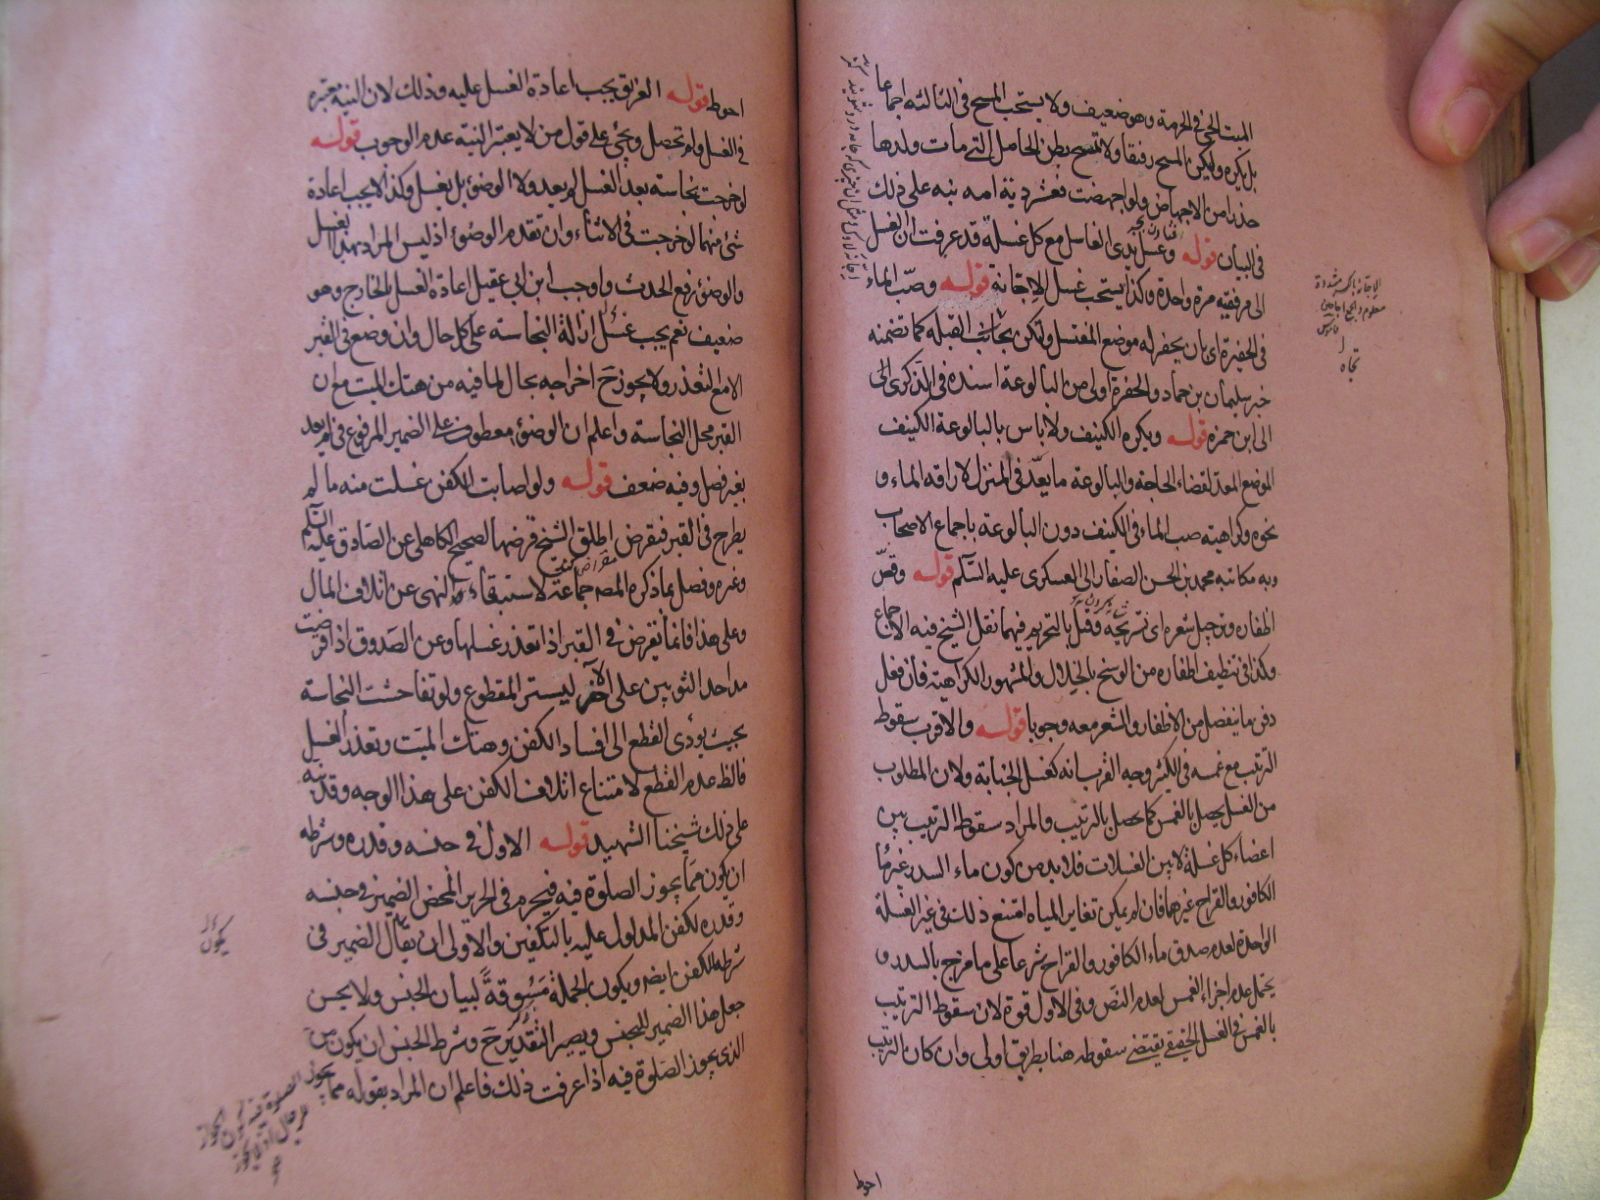 الميت الحي في الحرمة وهو ضعيف ولا يستحب المسح في الثالثة اجماعا
بل يكره وليكن المسح رفيقا ولا تمسح بطن الحامل التي مات ولدها
حذرا من الاجهاض ولو اجهضت فعشر دية امه نبه على ذلك
في البيان قوله وغسل يدي الغاسل مع كل غسلة قد عرفت ان الغسل
الى مرفقيه مرة واحدة وكذا يستحب غسل الاجانة قوله وصب الماء
في الحفيرة اي بان يحفر له موضع المغتسل ولتكن بجانب القبلة كما تضمنه
خبر سليمان بن حماد والحفرة اولى من البالوعة اسنده في الذكرى الى
الى ابن حمزه قوله ويكره الكنيف ولا باس بالبالوعة الكنيف
الموضع المعد لقضاء الحاجة والبالوعة ما يعد في المنزل لاراقة الماء و
نحوه وكراهية صب الماء في الكنيف دون البالوعة باجماع الاصحاب
وبه مكاتبة محمد بن الحسن الصفار الى العسكري عليه السلم قوله وقص
اظفاره وترجيل شعره اي تسريحه وقيل بالتحريم فيهما نقل الشيخ فيه الاجماع
وكذا في تنظيف اظفاره من الوسخ بالخلال والمشهور الكراهية فان فعل
دفن ما ينفصل من الاظفار والشعر معه وجوبا قوله والاقرب سقوط
الترتيب مع غمسه في الكثير وجه القرب انه كغسل الجنابة ولان المطلوب
من الغسل يحصل بالغمس كما يحصل بالترتيب والمراد سقوط الترتيب بين
اعضاء كل غسلة لا بين الغسلات فلا بد من كون ماء السدر غير ماء
الكافور والقراح غيرهما فان لم يمكن تغاير المياه امتنع ذلك في غير الغسلة
الواحدة لعدم صدق ماء الكافور والقراح شرعا على ما مزج بالسدر و
يحتمل عدم اجزاء الغمس لعدم النص وفي الاول قوة لان سقوط الترتيب
بالغمس في الغسل الحقيقي يقتضي سقوطه هنا بطريق اولى وان كان الترتيب
احوط
الاجانة بالكسر مشددة
معلوم والجمع اجاجين
قاموس
تجاه
احوط قوله الغريق يجب اعادة الغسل عليه وذلك لان النية معتبرة
في الغسل ولم تحصل ويجئ على قول من لا يعتبر النية عدم الوجوب قوله
لو خرجت نجاسة بعد الغسل لم يعد ولا الوضوء بل يغسل وكذا لا يجب اعادة
شئ منهما لو خرجت في الاثناء وان تقدم الوضوء اذ ليس المراد بهذا الغسل
والوضوء رفع الحدث واوجب ابن ابي عقيل اعادة الغسل للخارج وهو
ضعيف نعم يجب غسل ازالة النجاسة على كل حال وان وضع في القبر
الا مع التعذر ولا يجوز ح اخراجه بحال لما فيه من هتك الميت مع ان
القبر محل النجاسة واعلم ان الوضوء معطوف على الضمير المرفوع في لم يعد
بغير فصل وفيه ضعف قوله ولو اصابت الكفن غسلت منه ما لم
يطرح في القبر فتقرض اطلق الشيخ قرضها لصحيح الكاهلي عن الصادق عليه السلم
وغيره وفصل بما ذكره المص جماعة لاستبقاء والنهي عن اتلاف المال
وعلى هذا فانما تقرض في القبر اذا تعذر غسلها وعن الصدوق اذا قرضت
مد احد الثوبين على الآخر ليستر المقطوع ولو تفاحشت النجاسة
بحيث يؤدي القطع الى افساد الكفن وهتك الميت وتعذر الغسل
فالظ عدم القطع لامتناع اتلاف الكفن على هذا الوجه وقد نبه
على ذلك شيخنا الشهيد قوله الاول في جنسه وقدره وشرطه
ان يكون مما يجوز الصلوة فيه فيحرم في الحرير المحض الضمير في جنسه
وقدره للكفن المدلول عليه بالتكفين والاولى ان يقال الضمير في
شرطه للكفن ايضا ويكون الجملة مسوقة لبيان الجنس ولا يحسن
جعل هذا الضمير للجنس ويصير التقدير ح وشرط الجنس ان يكون من
الذي يجوز الصلوة فيه اذا عرفت ذلك فاعلم ان المراد بقوله مما
يجوز الصلوة فيه
يكون